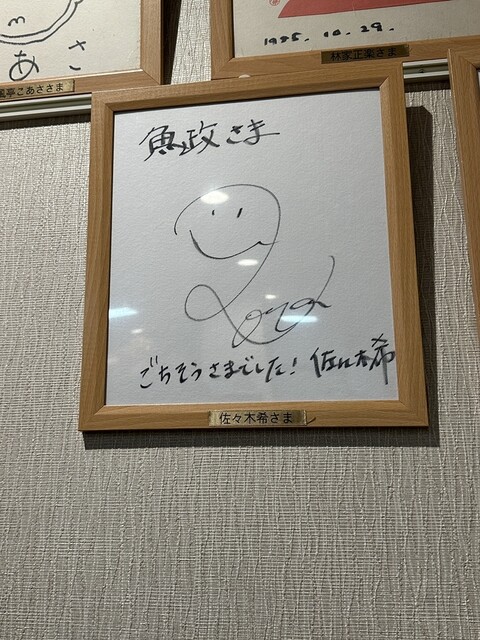 あさ
亭こあささま
1985.10.29.
林家正楽さま
魚政さま
ごちそうさまでした! 佐々木希
佐々木希さま